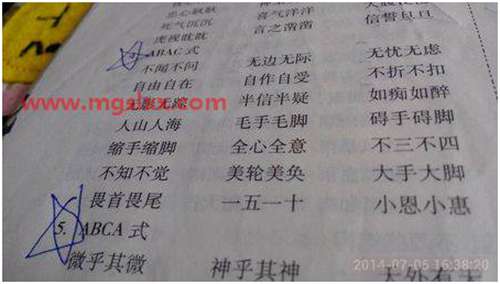 死气沉沉 喜气洋洋
虎视眈眈 言之凿凿 信誓旦旦
ABAC 式
不闻不问 无边无际 无忧无虑
自由自在 自作自受 不折不扣
无影无踪 半信半疑 如痴如醉
人山人海 毛手毛脚 碍手碍脚
缩手缩脚 全心全意 不三不四
不知不觉 美轮美奂 大手大脚
畏首畏尾 一五一十 小恩小惠
5. ABCA 式
微乎其微 神乎其神 天外有天
2014-07-05 16:38:20